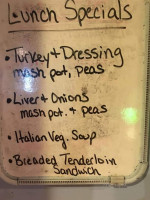 Lunch Specials
• Turkey & Dressing
mash pot, peas
• Liver & Onions
mash pot. & peas
• Italian Veg. Soup
• Breaded Tenderloin
Sandwich